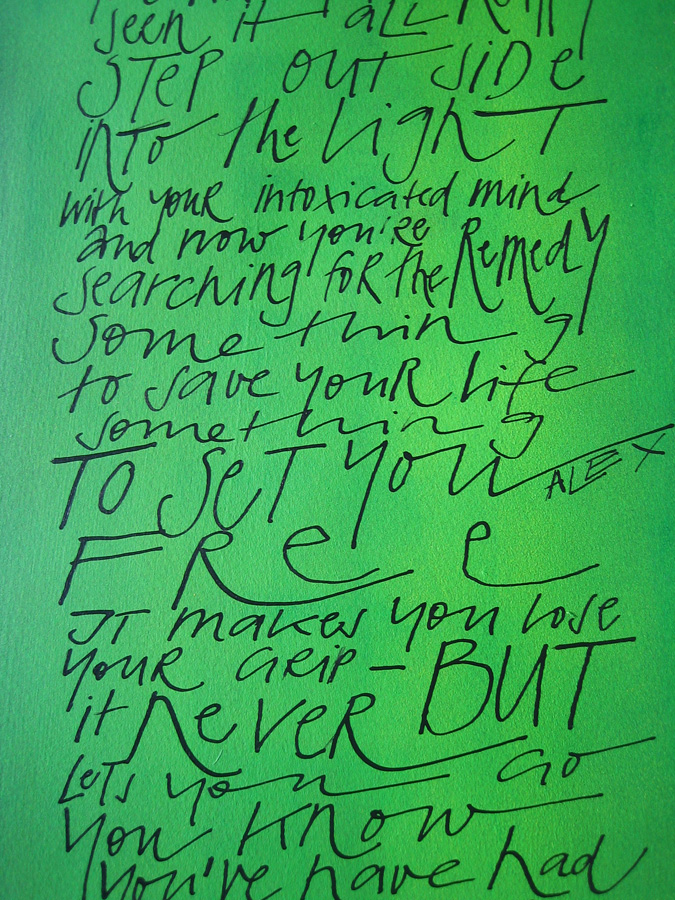 seen it all
STEP OUT SIDE
into the Light
with your intoxicated mind
and now you're
searching for the Remedy
something
to save your life
something
TO SET YOU
ALEX
FREE
IT makes you lose
your GRIP - BUT
it NEVER
Lets you Go
you know
you've have had